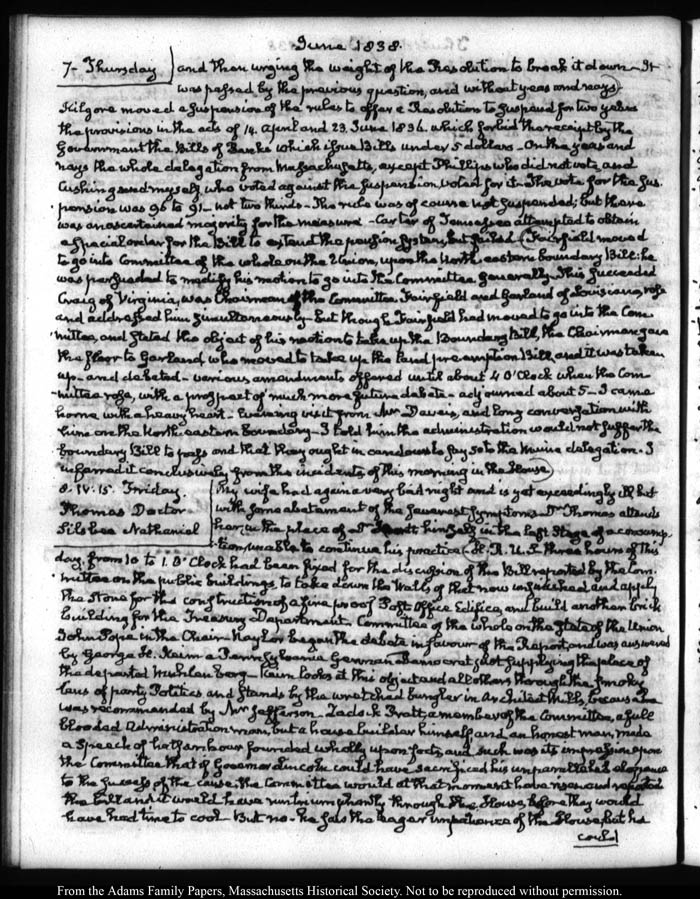 June 1838.
7- Thursday and then urging the weight of the Resolution to break it down - It
was passed by the previous question, and without yeas and nays)
Kilgore moved a suspension of the rules to offer a Resolution to suspend for two years
the provisions in the acts of 14. April and 23. June 1836. which forbid the receipt by the
Government the Bills of Banks which issue Bills under 5 dollars - On the yeas and
nays the whole delegation from Massachusetts, except Phillips who did not vote and
Cushing and myself, who voted against the suspension voted for it - The vote for the sus-
pension was 96 to 91 - not two thirds - The rule was of course not suspended; but there
was an ascertained majority for the measure - Carter of Tennessee attempted to obtain
a special order for the Bill to extend the pension system, but failed (Fairfield moved
to go into Committee of the whole on the Union, upon the North-eastern boundary Bill: he
was persuaded to modify his motion to go into the Committee generally - This succeeded
Craig of Virginia, was Chairman of the Committee. Fairfield and Garland of Louisiana, rose
and addressed him simultaneously - but though Fairfield had moved to go into the Com-
mittee, and stated the object of his motion to take up the Boundary Bill, the Chairman gave
the floor to Garland who moved to take up the Land pre-emption Bill, and it was taken
up - and debated - various amendments offered until about 4 O'Clock when the Com-
mittee rose, with a prospect of much more future debate - adjourned about 5 - I came
home with a heavy heart - Evening visit from Mr Davis, and long conversation with
him on the North-eastern boundary - I told him the administration would not suffer the
boundary Bill to pass and that they ought in candour to say so to the Maine delegation. I
inferred it conclusively from the incidents of this morning in the House)
8. IV:15. Friday. My wife had again a very bad night and is yet exceedingly ill but
Thomas Doctor with some abatement of the severest symptoms - Dr Thomas attends
Silsbee Nathaniel her, in the place of Dr himself in the last stage of a consump-
tion unable to continue his practice (H.R.U.S. three hours of this
day, from 10 to 1. O'Clock had been fixed for the discussion of the Bill reported by the Com-
mittee on the public buildings, to take down the Walls of that now unfinished and apply
the stone for the construction of a fire proof Post Office Edifice, and build another brick
building for the Treasury Department. Committee of the whole on the state of the Union
John Pope in the Chair - Naylor began the debate in favour of the Report and was answered
by George M. Keim a Pennsylvania German Democrat just supplying the place of
the departed Muhlenberg - Keim looks at this object and all others through the smoky
lens of party Politics and stands by the wretched bungler in Architect Mills, because he
was recommended by Mr Jefferson - Zadock Pratt, a member of the Committee, a full
blooded Administration man, but a house builder himself and an honest man, made
a speech of half an hour founded wholly upon facts, and such was its impression upon
the Committee that if Governor Lincoln could have sacrificed his unparalleled eloquence
to the success of the cause, the Committee would at that moment have risen and reported
the bill and it would have run triumphantly through the House, before they would
have had time to cool - But no - he saw the eager impatience of the House, but he
could
From the Adams Family Papers, Massachusetts Historical Society. Not to be reproduced without permission.